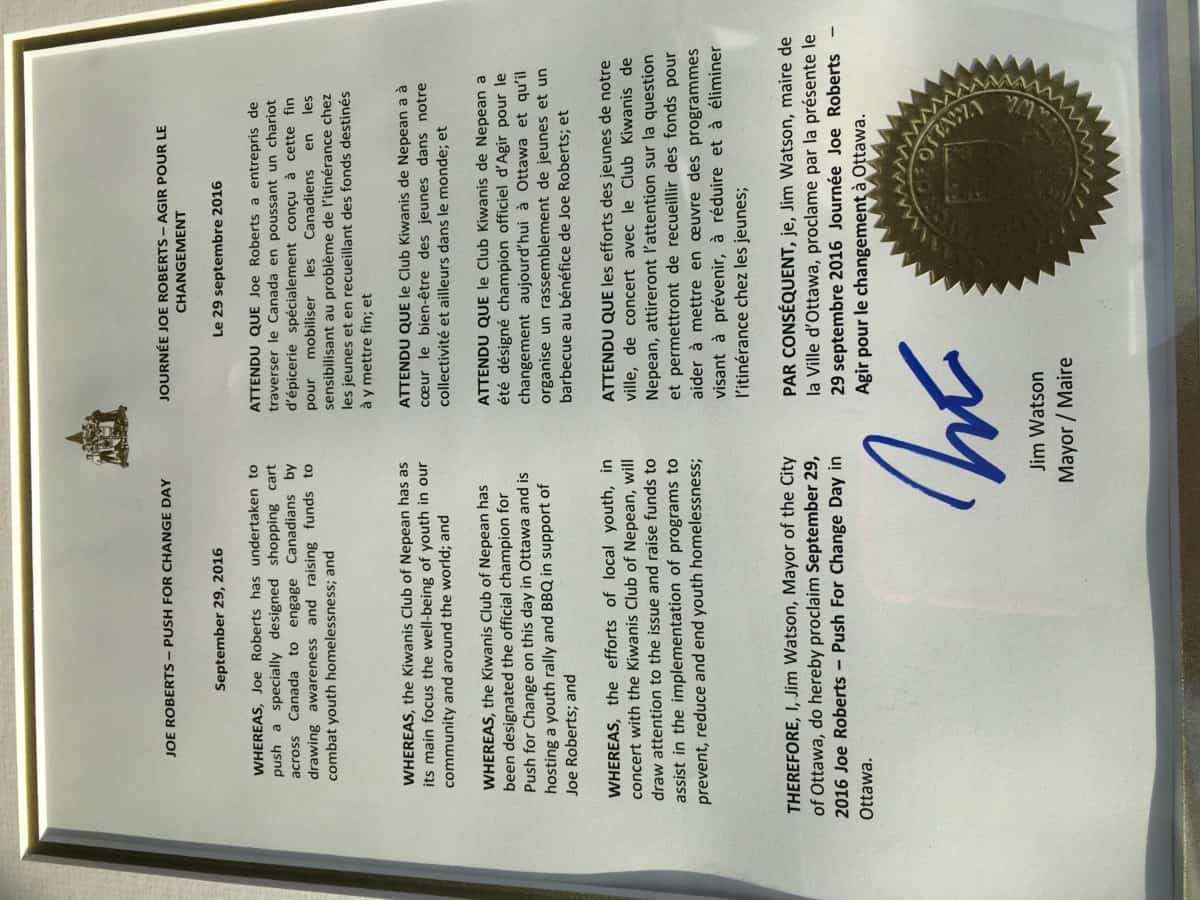 JOE ROBERTS – PUSH FOR CHANGE DAY
September 29, 2016
WHEREAS, Joe Roberts has undertaken to
push a specially designed shopping cart
across Canada to engage Canadians by
drawing awareness and raising funds to
combat youth homelessness; and
WHEREAS, the Kiwanis Club of Nepean has as
its main focus the well-being of youth in our
community and around the world; and
WHEREAS, the Kiwanis Club of Nepean has
been designated the official champion for
Push for Change on this day in Ottawa and is
hosting a youth rally and BBQ in support of
Joe Roberts; and
WHEREAS, the efforts of local youth, in
concert with the Kiwanis Club of Nepean, will
draw attention to the issue and raise funds to
assist in the implementation of programs to
prevent, reduce and end youth homelessness;
THEREFORE, I, Jim Watson, Mayor of the City
of Ottawa, do hereby proclaim September 29,
2016 Joe Roberts – Push For Change Day in
Ottawa.
JOURNÉE JOE ROBERTS – AGIR POUR LE
CHANGEMENT
Le 29 septembre 2016
ATTENDU QUE Joe Roberts a entrepris de
traverser le Canada en poussant un chariot
d'épicerie spécialement conçu à cette fin
pour mobiliser les Canadiens en les
sensibilisant au problème de l'itinérance chez
les jeunes et en recueillant des fonds destinés
à y mettre fin; et
ATTENDU QUE le Club Kiwanis de Nepean a à
cœur le bien-être des jeunes dans notre
collectivité et ailleurs dans le monde; et
ATTENDU QUE le Club Kiwanis de Nepean a
été désigné champion officiel d'Agir pour le
changement aujourd'hui à Ottawa et qu'il
organise un rassemblement de jeunes et un
barbecue au bénéfice de Joe Roberts; et
ATTENDU QUE les efforts des jeunes de notre
ville, de concert avec le Club Kiwanis de
Nepean, attireront l'attention sur la question
et permettront de recueillir des fonds pour
aider à mettre en œuvre des programmes
visant à prévenir, à réduire et à éliminer
l'itinérance chez les jeunes;
PAR CONSÉQUENT, je, Jim Watson, maire de
la Ville d'Ottawa, proclame par la présente le
29 septembre 2016 Journée Joe Roberts –
Agir pour le changement à Ottawa.
Jim Watson
Mayor / Maire
OF OTTAWA